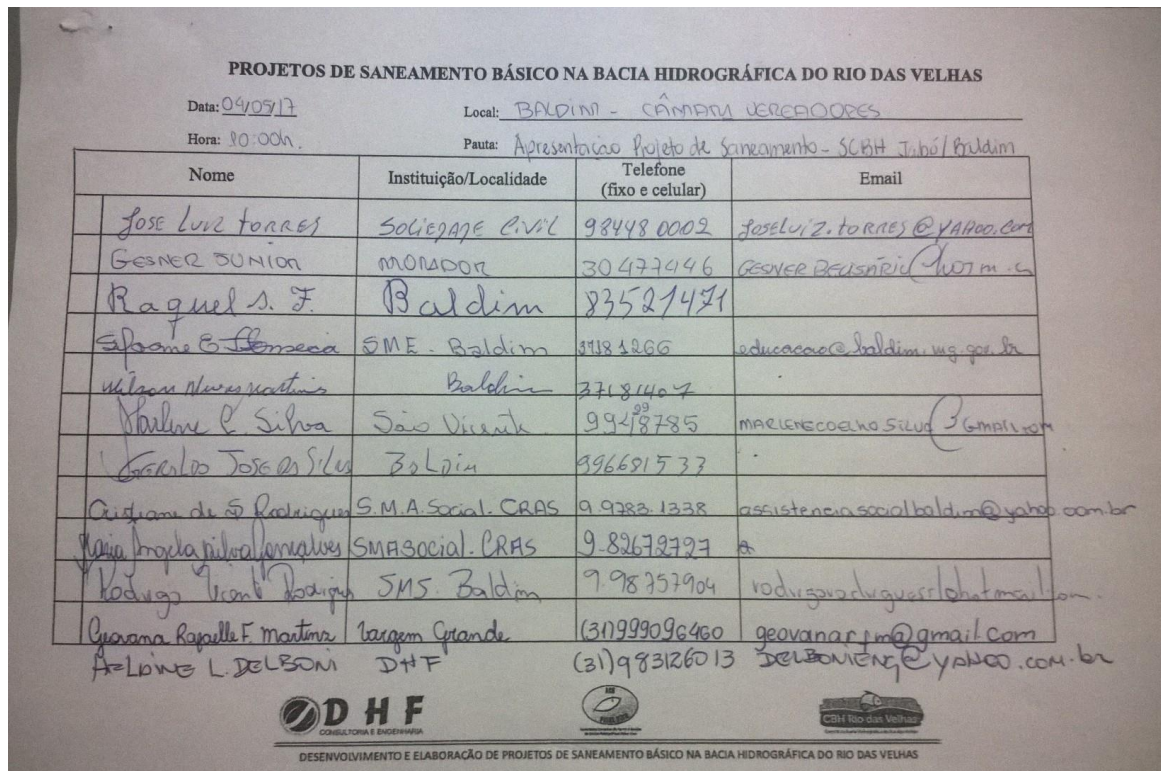 PROJETOS DE SANEAMENTO BÁSICO NA BACIA HIDROGRÁFICA DO RIO DAS VELHAS
Data: 04/05/17 Local: BALDIM - CÂMARA VEREADORES
Hora: 10:00h. Pauta: Apresentação Projeto de Saneamento - SCBH Jabó/Baldim
Nome Instituição/Localidade Telefone (fixo e celular) Email
JOSE LUIZ TORRES SOCIEDADE CIVIL 98448 0002 JOSELUIZ.TORRES@YAHOO.COM
GESNER JUNIOR MORADOR 30477446 GESNER BELISÁRIO@
Raquel S. F. Baldim 83521471
Fonseca SME - Baldim 37181266 educacao@baldim.mg.gov.br
Wilson Martins Baldim 37181407
Marlene C. Silva São Vicente 99 MARLENECOELHO SILVA@GMAIL.COM
GERALDO JOSE DA SILVA BALDIM 996681533
Cristiane de S Rodrigues S.M.A.Social. CRAS 9.9783.1338 assistenciasocialbaldim@yahoo.com.br
Maria Angela Silva Gonçalves SMASocial. CRAS 9-82672727
Rodrigo Rodrigues SMS. Baldim 9.98757904
Geovana Rafaelle F. Martins Vargem Grande (31)999096460 geovanarfm@gmail.com
L. DELBONI DHF (31)983126013 DELBONIENG@YAHOO.COM.br
DHF
CONSULTORIA E ENGENHARIA
CBH Rio das Velhas
DESENVOLVIMENTO E ELABORAÇÃO DE PROJETOS DE SANEAMENTO BÁSICO NA BACIA HIDROGRÁFICA DO RIO DAS VELHAS